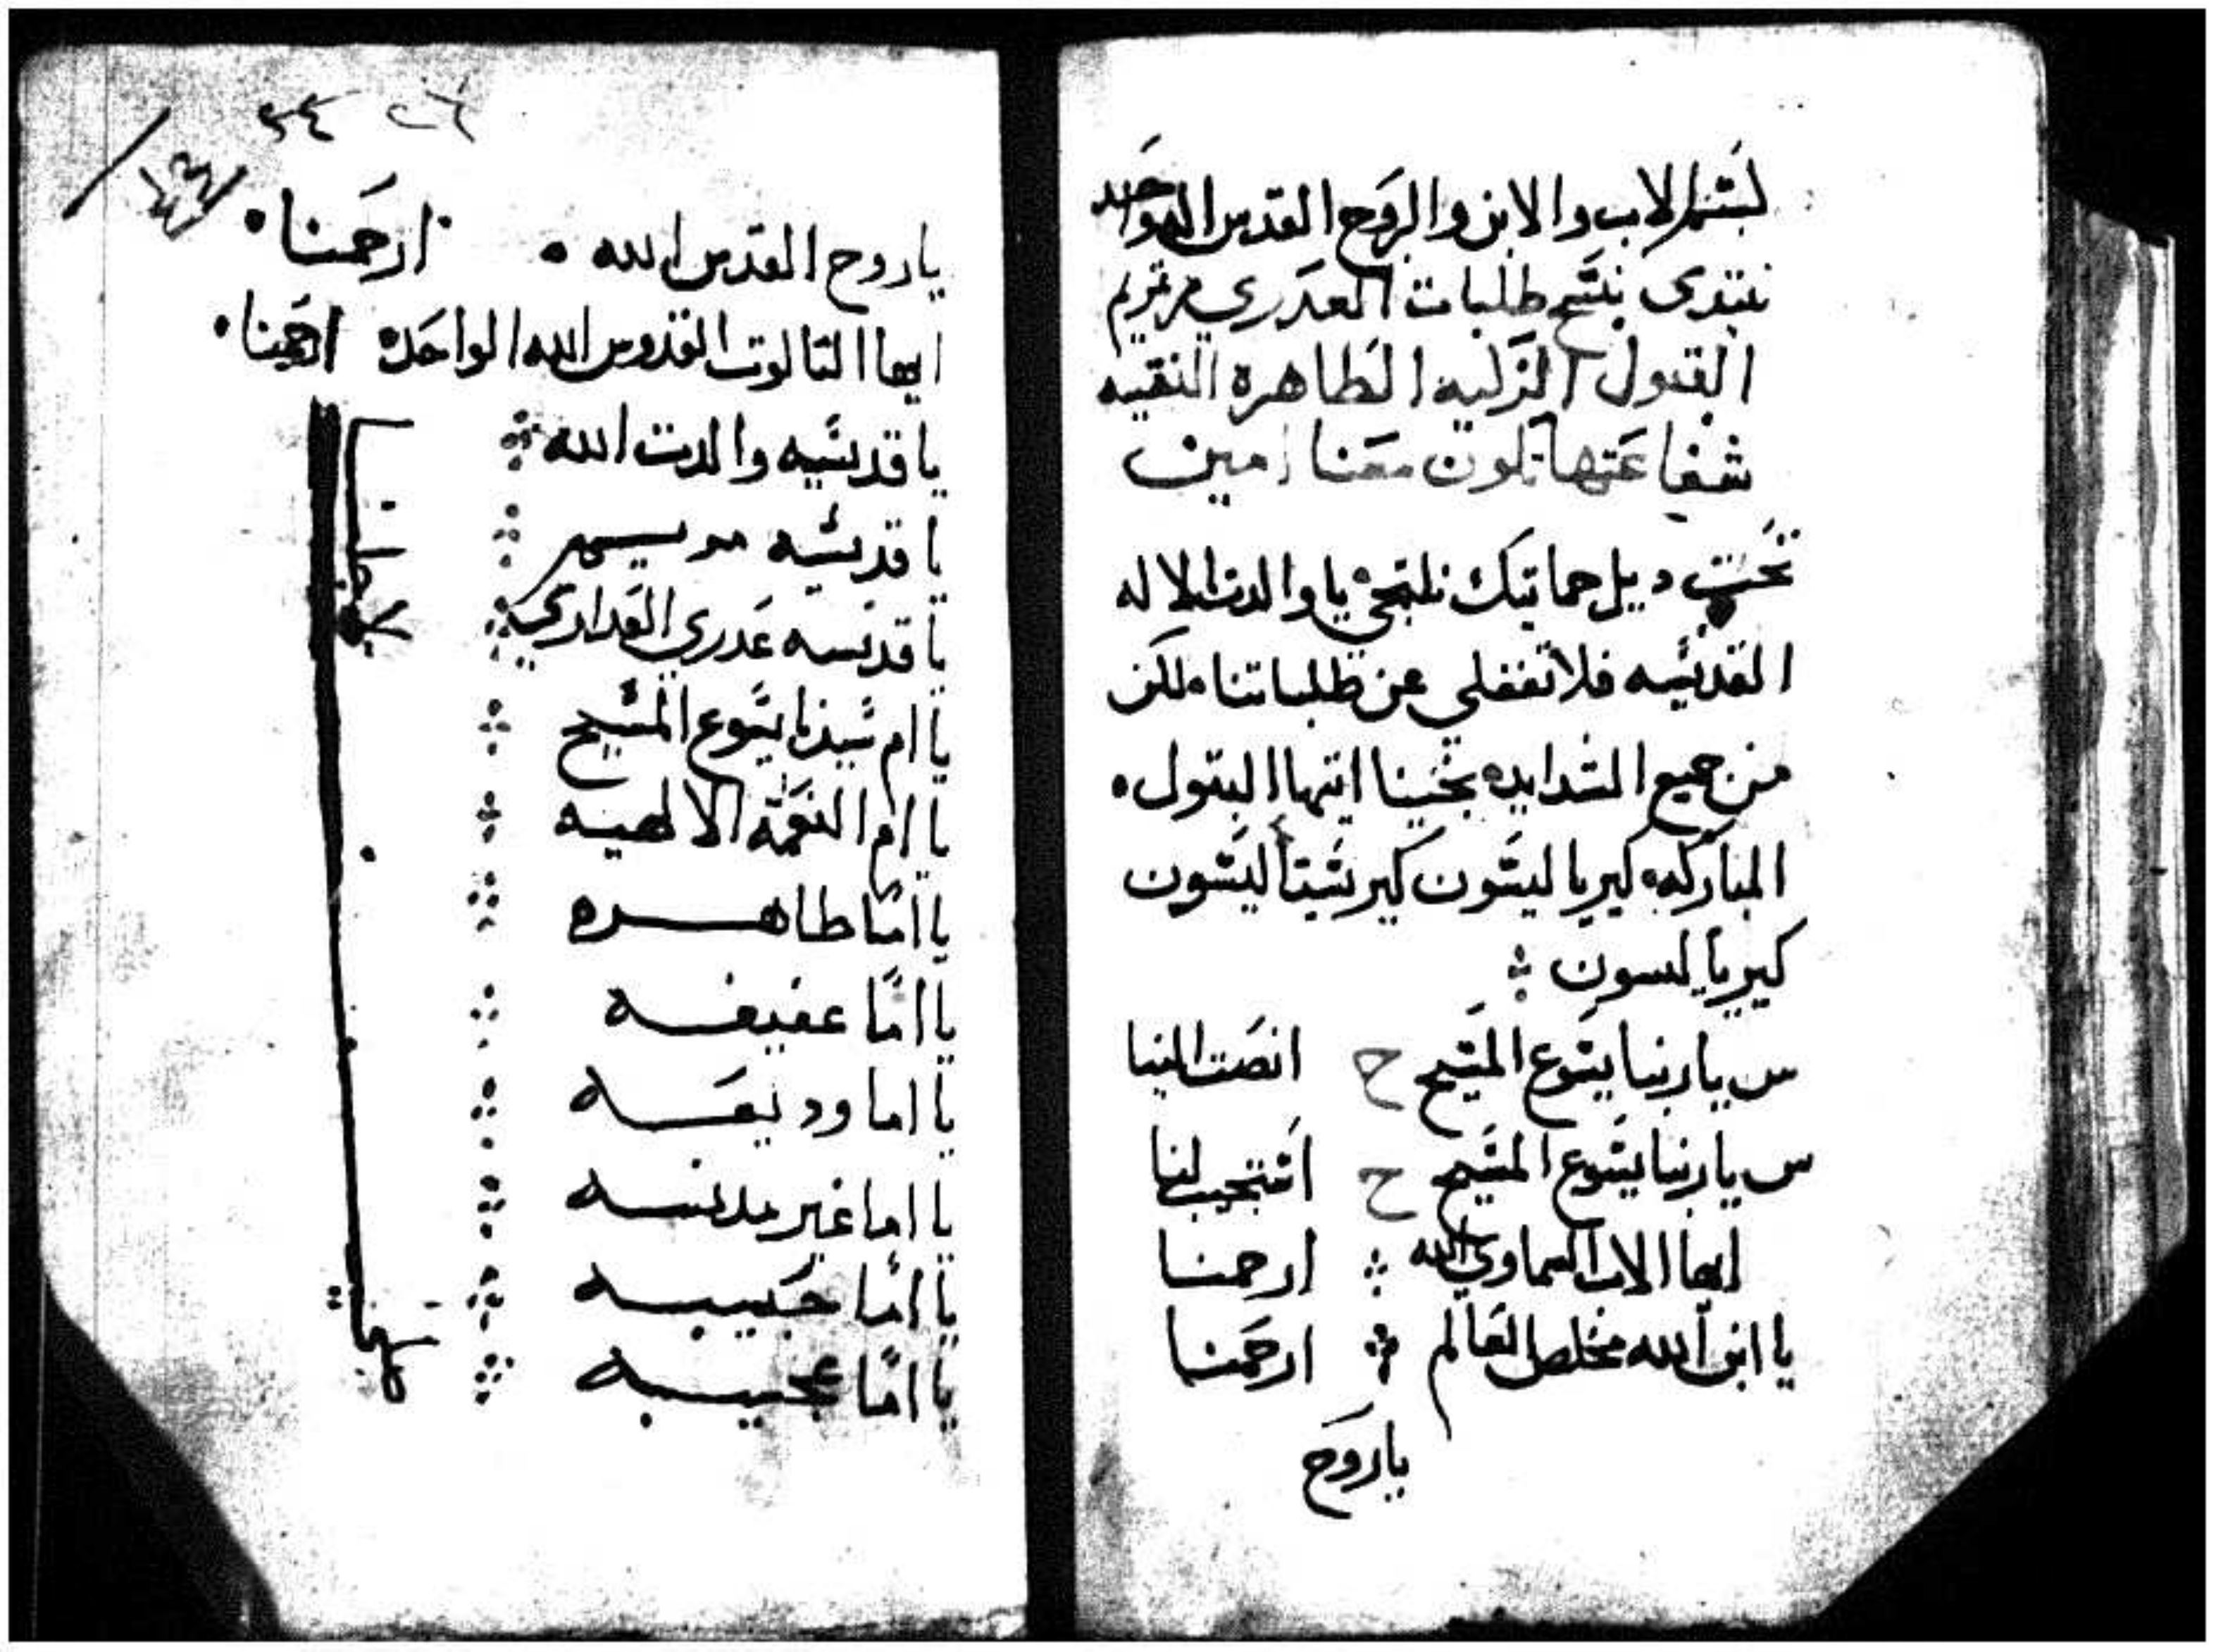 بسم الاب والابن والروح القدس اله واحد
نبتدى بنسخ طلبات العدري مريم
البتول الزكيه الطاهره النقيه
شفاعتها تكون معنا امين
تحت ديل حمايتك نلتجي يا والدت الاله
القديسه فلا تغفلي عن طلباتنا لكن
من جميع الشدايد نجينا ايتها البتول
المباركه كيريا ليسون كيرستا ليسون
كيريا ليسون
س يا ربنا يسوع المسيح ح انصت الينا
س يا ربنا يسوع المسيح ح استجيب لنا
ايها الاب السماوي الله ارحمنا
يا ابن الله مخلص العالم ارحمنا
يا روح
٢٤ ٢٦
يا روح القدس الله ارحمنا
ايها التالوت القدوس الله الواحد ارحمنا
يا قديسه والدت الله
يا قديسه مريم
يا قديسه عدري العداري
يا ام سيدنا يسوع المسيح
يا ام النعمة الالهيه
يا اما طاهره
يا اما عفيفه
يا اما وديعه
يا اما غير مدنسه
يا اما حبيبه
يا اما عجيبه